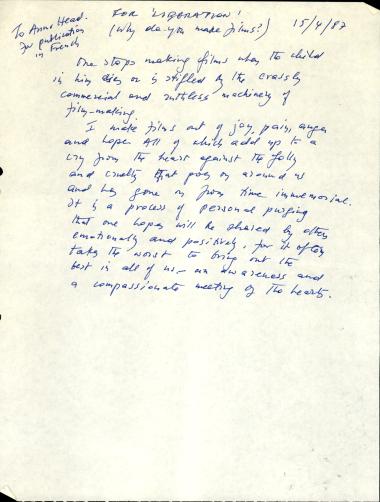 To Anne Head.
For publication
in French
FOR 'LIBERATION'.
(Why do you make films?)
15/4/87
One stops making films when the child
in him dies or is stifled by the crassly
commercial and ruthless machinery of
film-making.
I make films out of joy, pain, anger
and hope. All of which add up to a
cry from the heart against the folly
and cruelty that goes on around us
and has gone on from time immemorial.
It is a process of personal purging
that one hopes will be shared by others
emotionally and positively, for it often
takes the worst to bring out the
best in all of us - an awareness and
a compassionate meeting of the hearts.